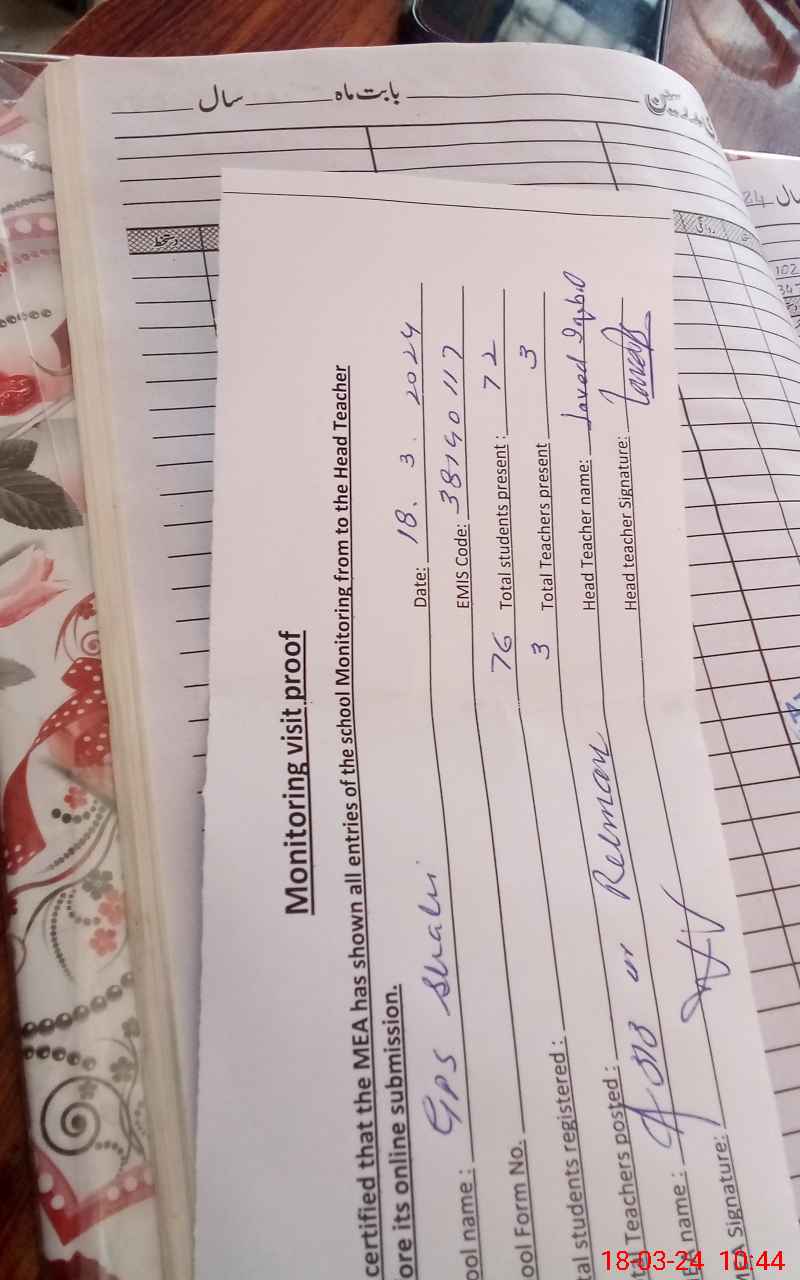 بابت ماہ سال
دستخط
Monitoring visit proof
certified that the MEA has shown all entries of the school Monitoring from to the Head Teacher
ore its online submission.
ool name : GPS Date: 18. 3. 2024
ool Form No. EMIS Code: 38140117
tal students registered : 76 Total students present : 72
tal Teachers posted : 3 Total Teachers present 3
EA name : ur Rehman Head Teacher name: Javed Iqbal
EA Signature: Head teacher Signature:
24 سال
18-03-24 10:44